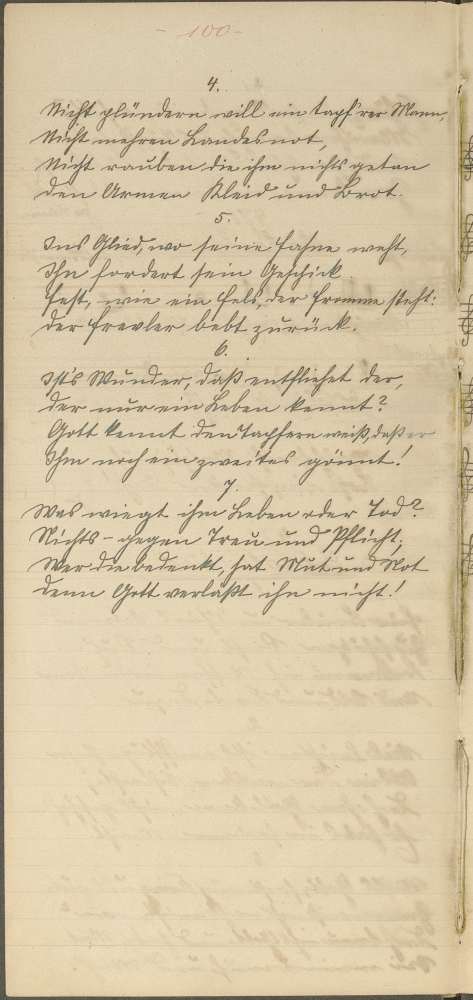 - 100 -
4.
Nicht plündern will ein tapf'rer Mann,
Nicht mehren Landesnot,
Nicht rauben, die ihm nichts getan
Den Armen Kleid und Brot.
5.
Ins Glied, wo seine Fahne weht,
Ihn fordert sein Geschick.
Fest, wie ein Fels, der Fromme steht:
Der Frevler bebt zurück.
6.
Ist's Wunder, daß entfliehet der,
Der nur ein Leben kennt?
Gott kennt den Tapfern weiß, daß er
Ihm noch ein zweites gönnt!
7.
Was wiegt ihm Leben oder Tod?
Nichts - gegen Treu und Pflicht;
Wer die bedenkt, hat Mut und Not
Denn Gott verläßt ihn nicht!